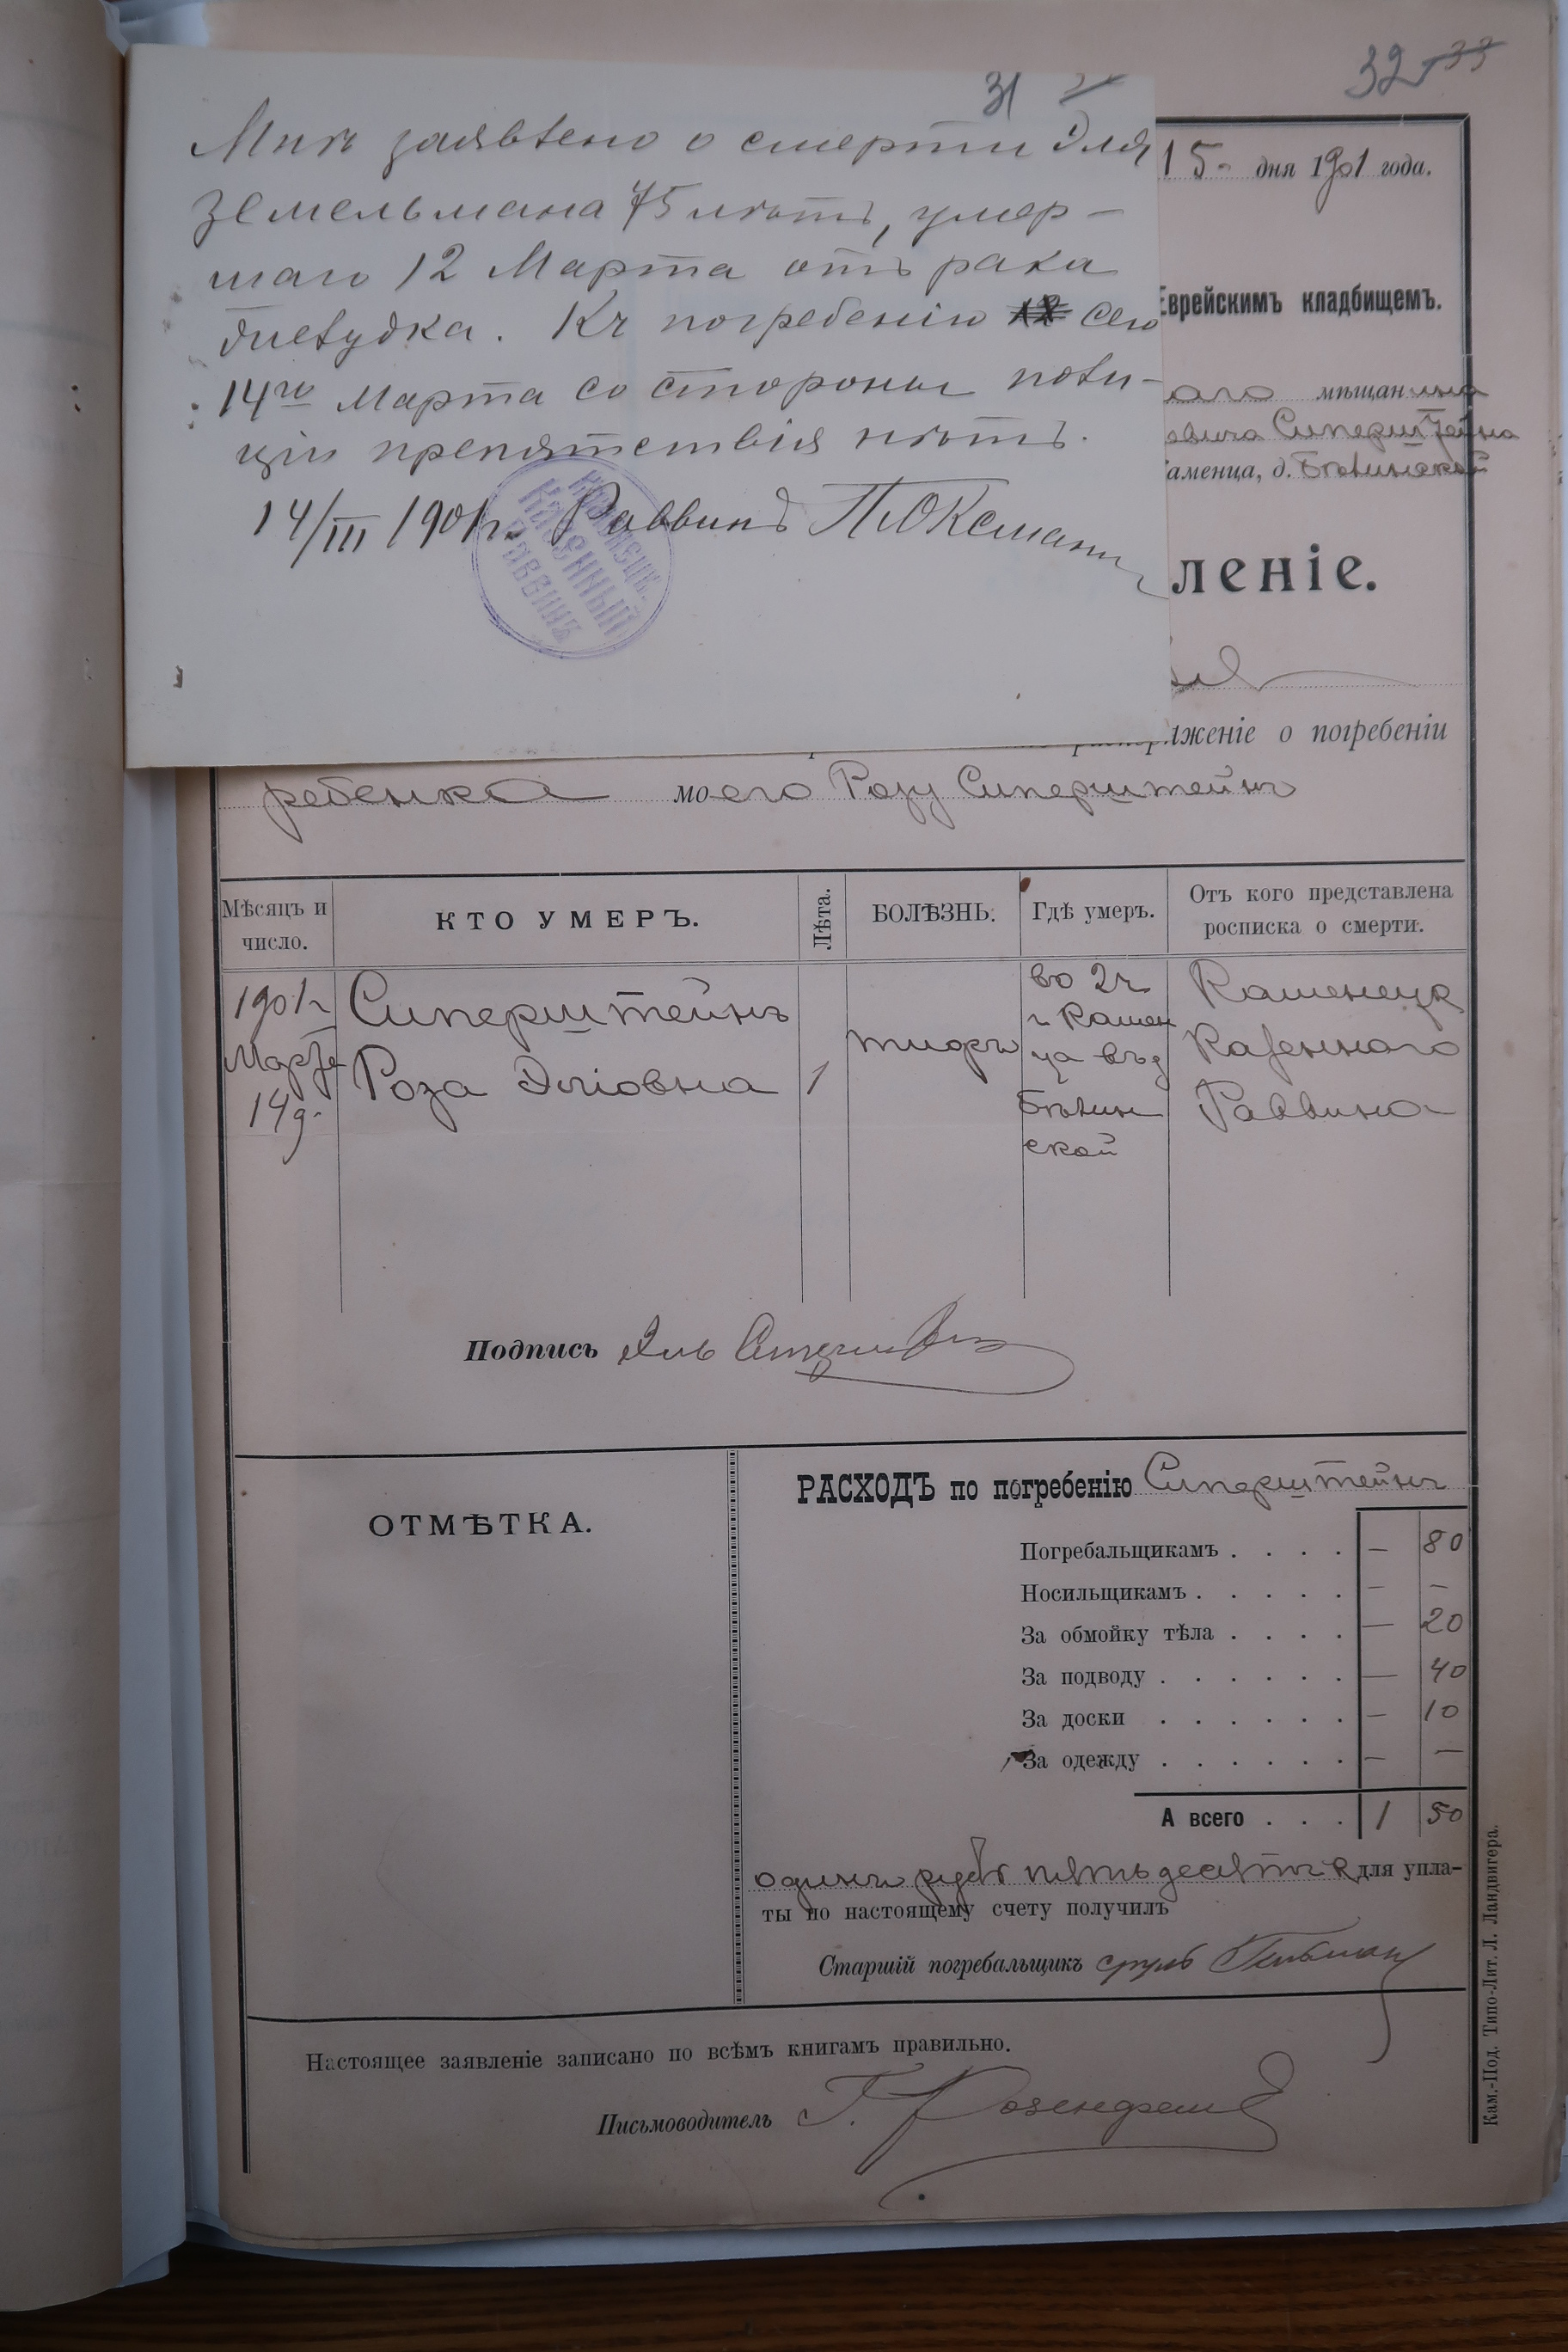 31
32 33
Мнѣ заявлено о смерти Эля
Земельмана 75 лѣтъ, умер-
шаго 12 Марта отъ рака
желудка. Къ погребенію сего
14го Марта со стороны поли-
ціи препятствія нѣтъ.
14/III 1901 г. Раввинъ
Казенный
Раввинъ
15 дня 1901 года.
Еврейскимъ кладбищемъ.
аго мѣщанина
евича Сиперштейна
аменца, д. Бѣлинской
леніе.
яженіе о погребеніи
ребенка моего Розу Сиперштейнъ
Мѣсяцъ и число. КТО УМЕРЪ. Лѣта. БОЛѢЗНЬ. Гдѣ умеръ. Отъ кого представлена росписка о смерти.
1901 г Марта 14 д. Сиперштейнъ Роза Эліовна 1 тифъ во 2 ч г Каменца въ д Бѣлинской Каменецк Казеннаго Раввина
Подпись Эль
ОТМѢТКА.
РАСХОДЪ по погребенію Сиперштейнъ
Погребальщикамъ . . . . — 80
Носильщикамъ . . . . . — —
За обмойку тѣла . . . . — 20
За подводу . . . . . . — 40
За доски . . . . . . — 10
За одежду . . . . . . — —
А всего . . . 1 50
одинъ руб пятьдесятъ к для упла-
ты по настоящему счету получилъ
Старшій погребальщикъ сруль
Настоящее заявленіе записано по всѣмъ книгамъ правильно.
Письмоводитель Г. Розенфельд
Кам.-Под. Типо-Лит. Л. Ландвигера.